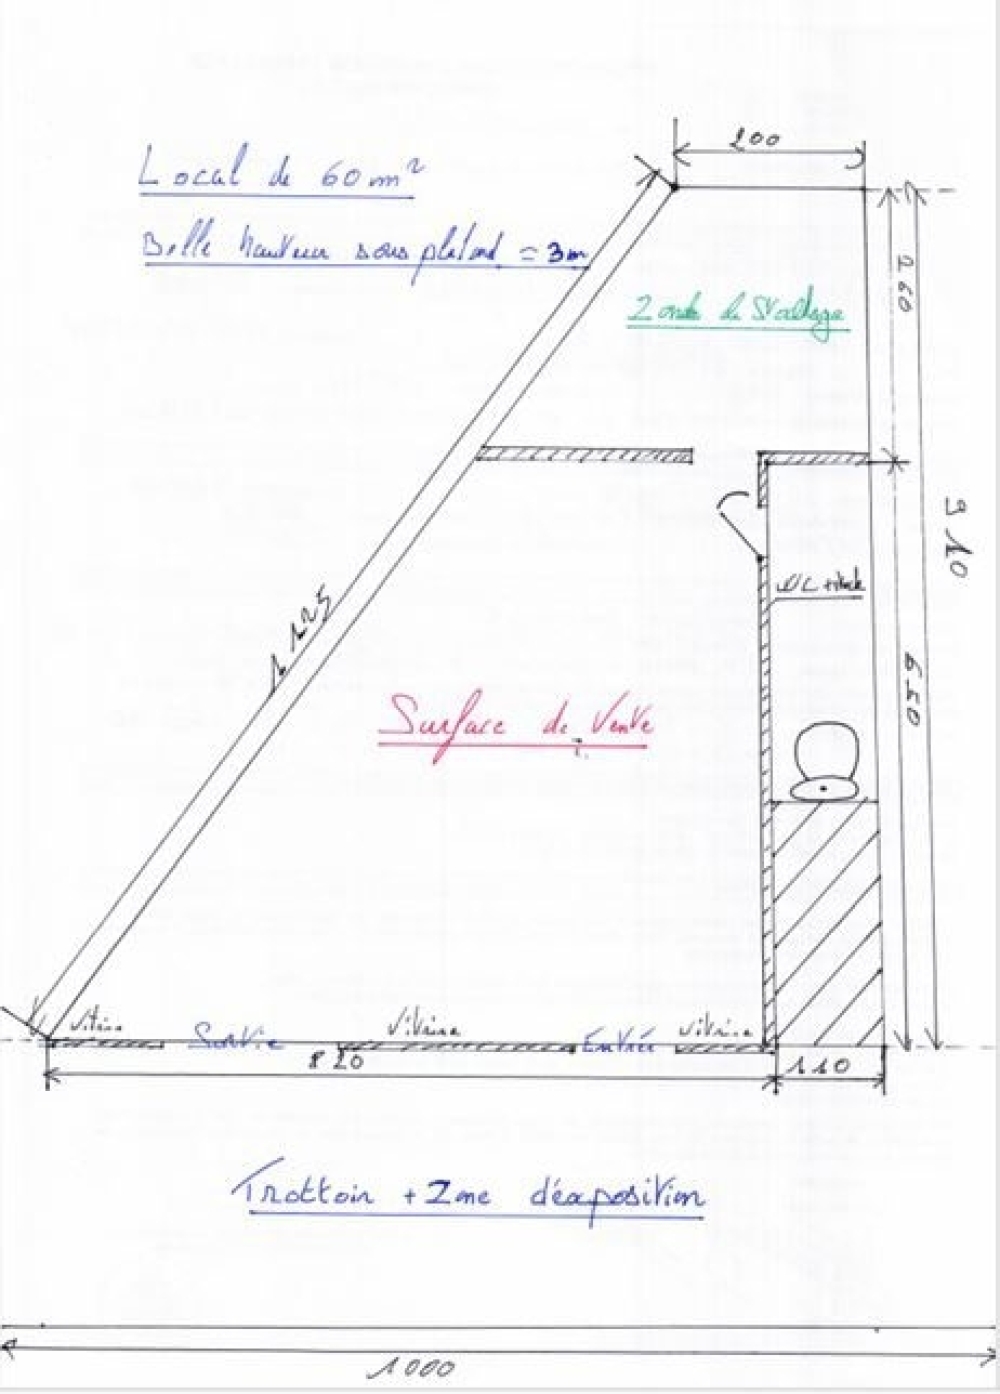 200
Local de 60 m²
Belle hauteur sous plafond = 3m
260
Zone de Stockage
910
WC +
1125
650
Surface de Vente
Vitrine
Sortie
Vitrine
Entrée
Vitrine
820
110
Trottoir + Zone d'éxposition
1000